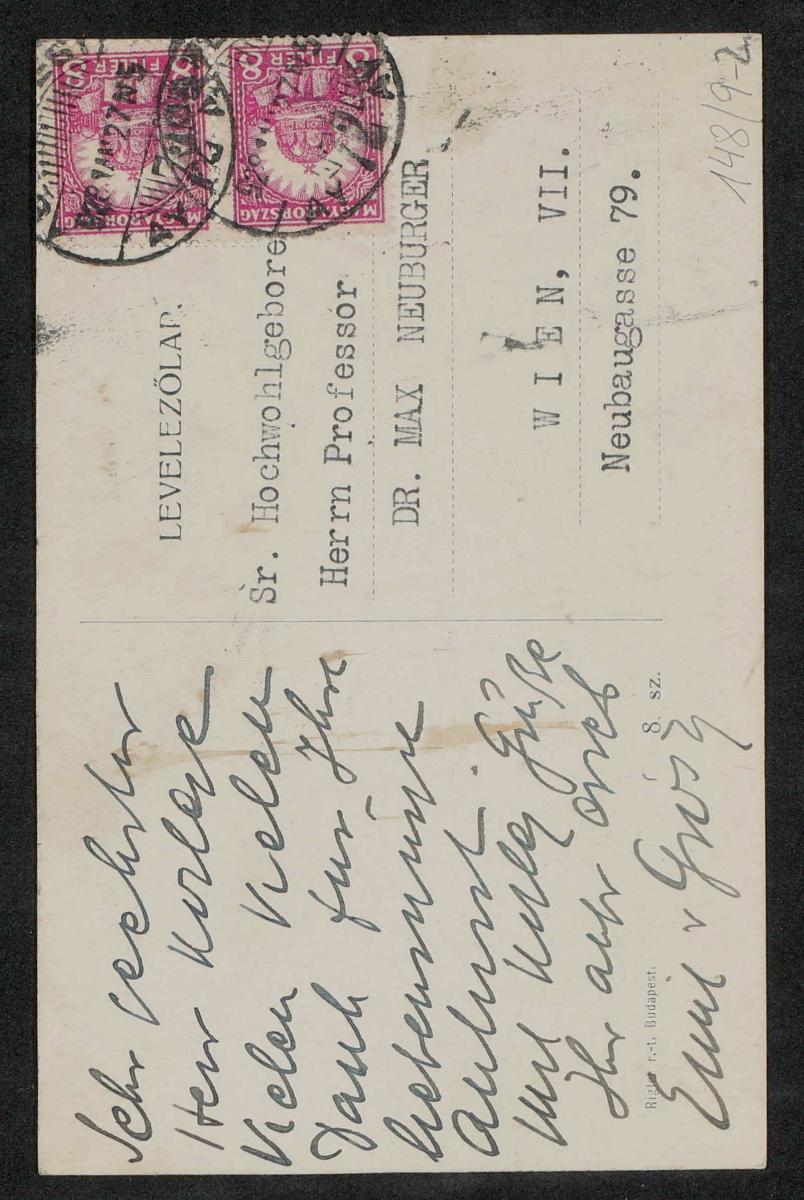 Sehr verehrter
Herr Kollege
Vielen Vielen
Dank für Ihre
liebenswürdige
Antwort.
Mit kolleg Grüße
Ihr aufr
Emil v Grósz
Rigler r.-t. Budapest.
8. sz.
LEVELEZŐLAP.
Sr. Hochwohlgebore
Herrn Professor
DR. MAX NEUBURGER
WIEN, VII.
Neubaugasse 79.
8 FILLÉR 8
MAGYARORSZÁG
8 FILLÉR 8
MAGYARORSZÁG
148/9-2